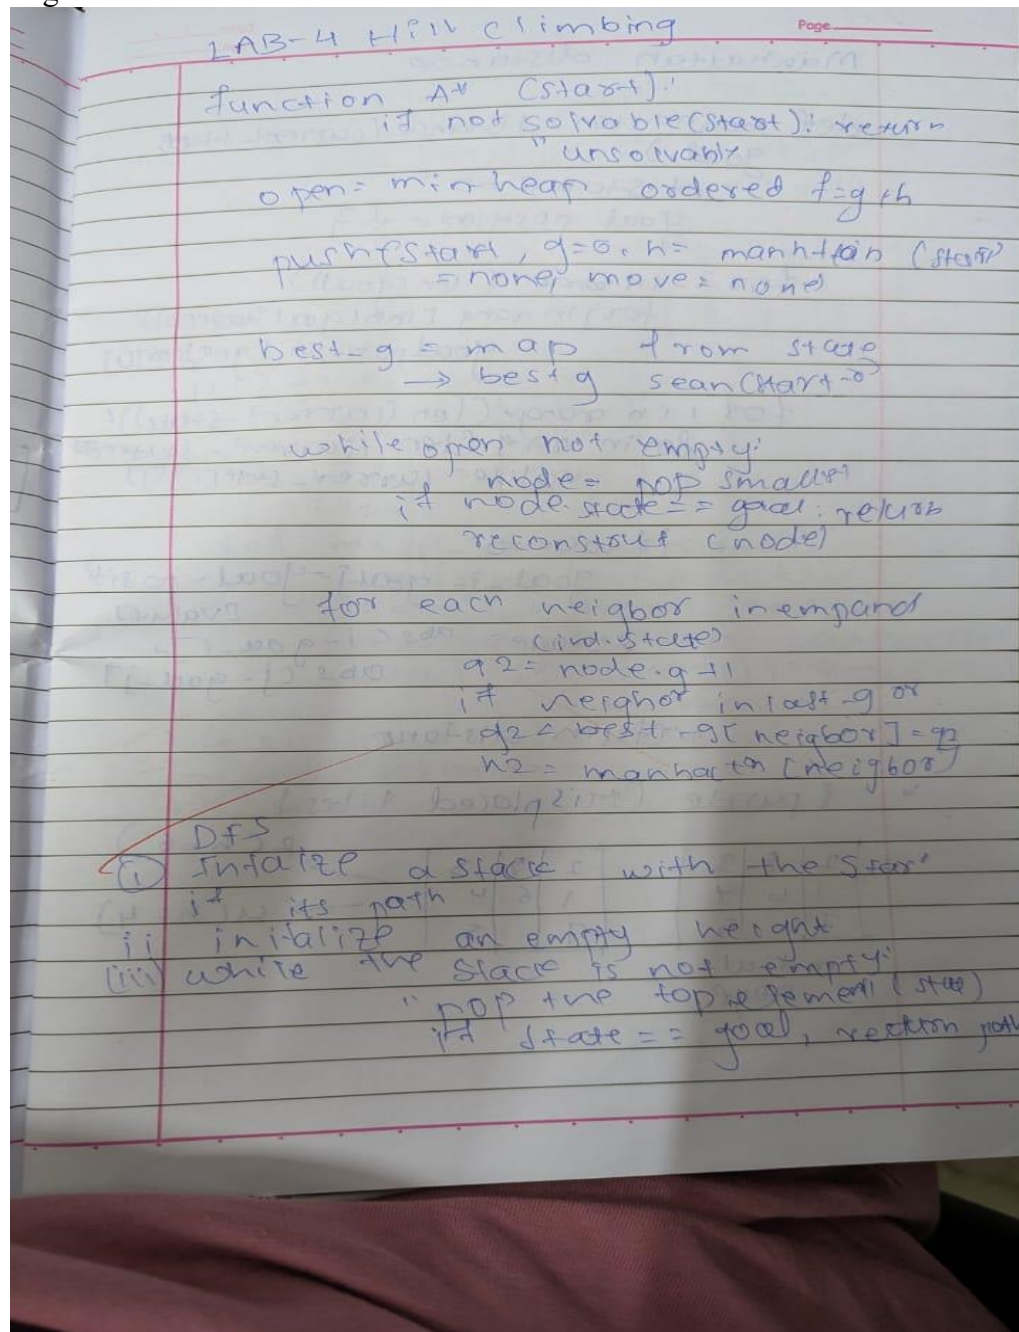 Page
LAB-4 Hill Climbing
function A* (start):
if not solvable(start): return
"unsolvable
open= min heap ordered f=g+h
push(start, g=0, h= manhttan (start)
= none, move= none)
best-g = map from state
→ best g sean(start-0
while open not empty:
node= pop smallest
if node.state== goal: return
reconstruct (node)
for each neigbor in empand
(ind.state)
g2= node.g+1
if neighor in last-g or
g2 < best-g[neigbor]=g2
h2= manhattn (neigbor)
DFS
(i) Intalize a stack with the Star
if its path
ii initalize an empty height
(iii) while the stack is not empty:
"pop the top element (state)
if state == goal, rection path